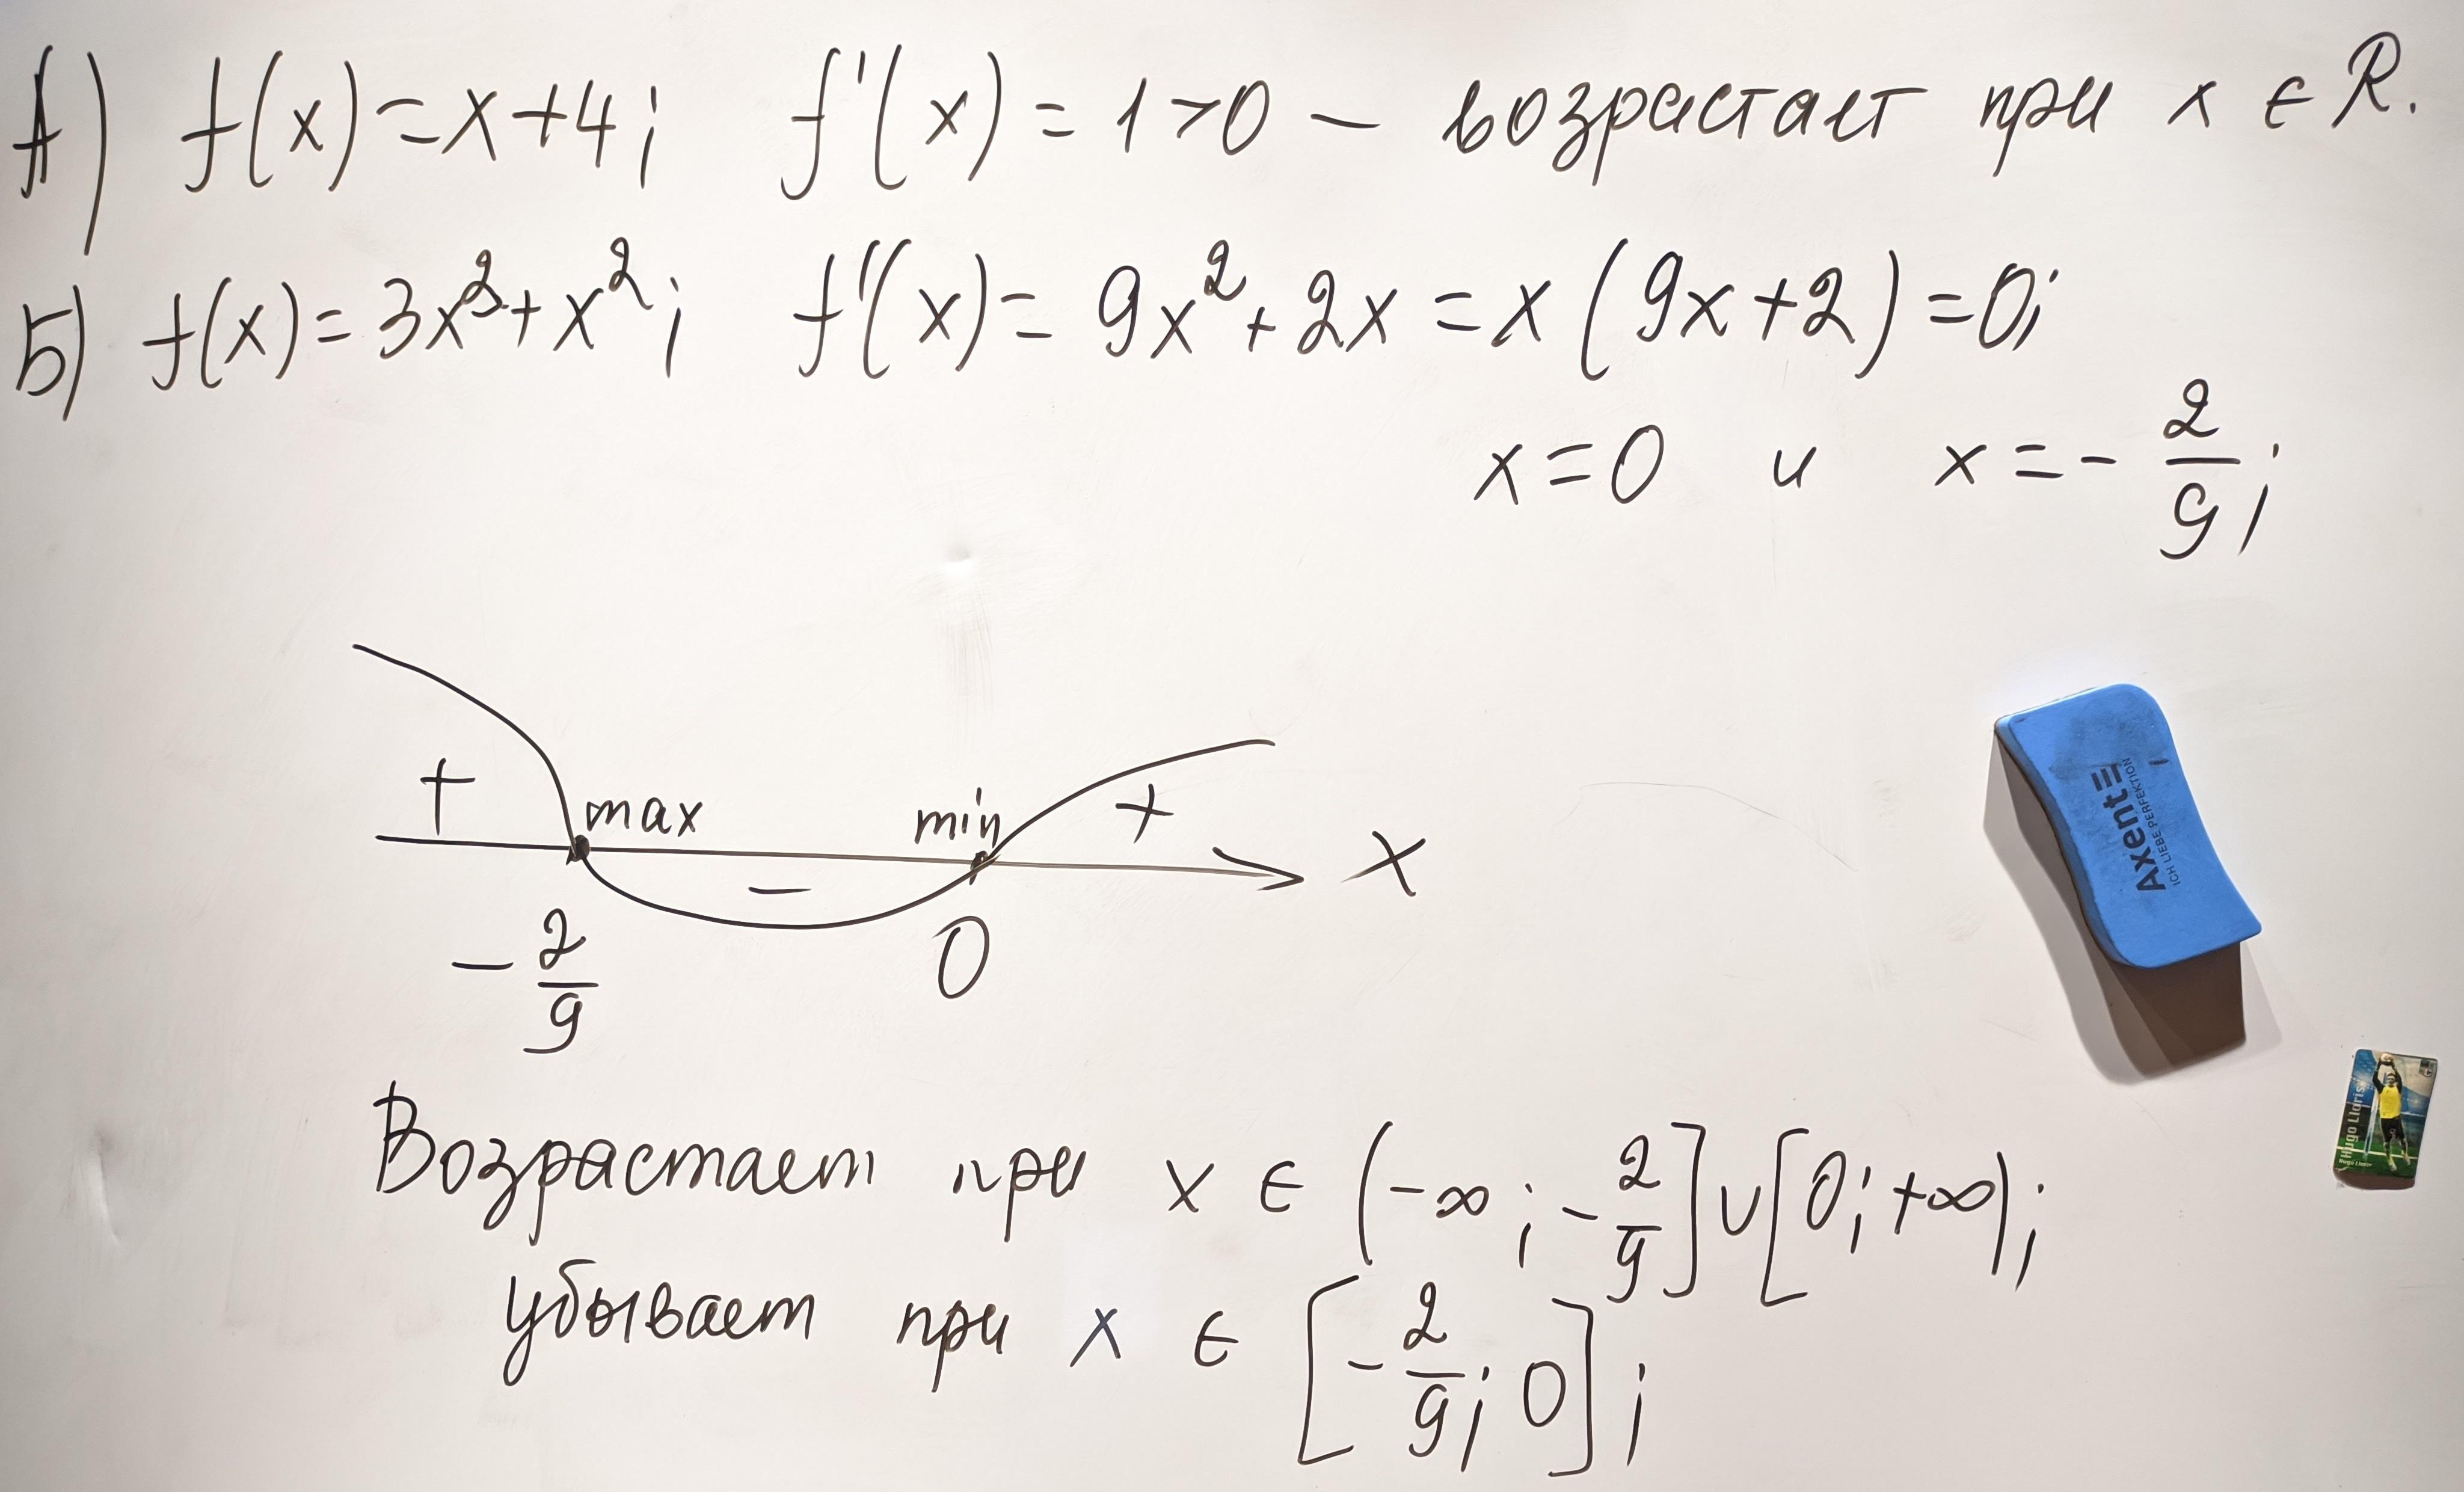 А) f(x) = x+4; f'(x) = 1>0 – возрастает при x ∈ R.
Б) f(x) = 3x³+x²; f'(x) = 9x²+2x = x(9x+2) = 0;
x=0 и x = - 2/9;
+ max - min + x
- 2/9 0
Возрастает при x ∈ (-∞; - 2/9] ∪ [0; +∞);
убывает при x ∈ [- 2/9; 0];
Axent
ICH LIEBE PERFEKTION
Hugo Lloris
Hugo Lloris